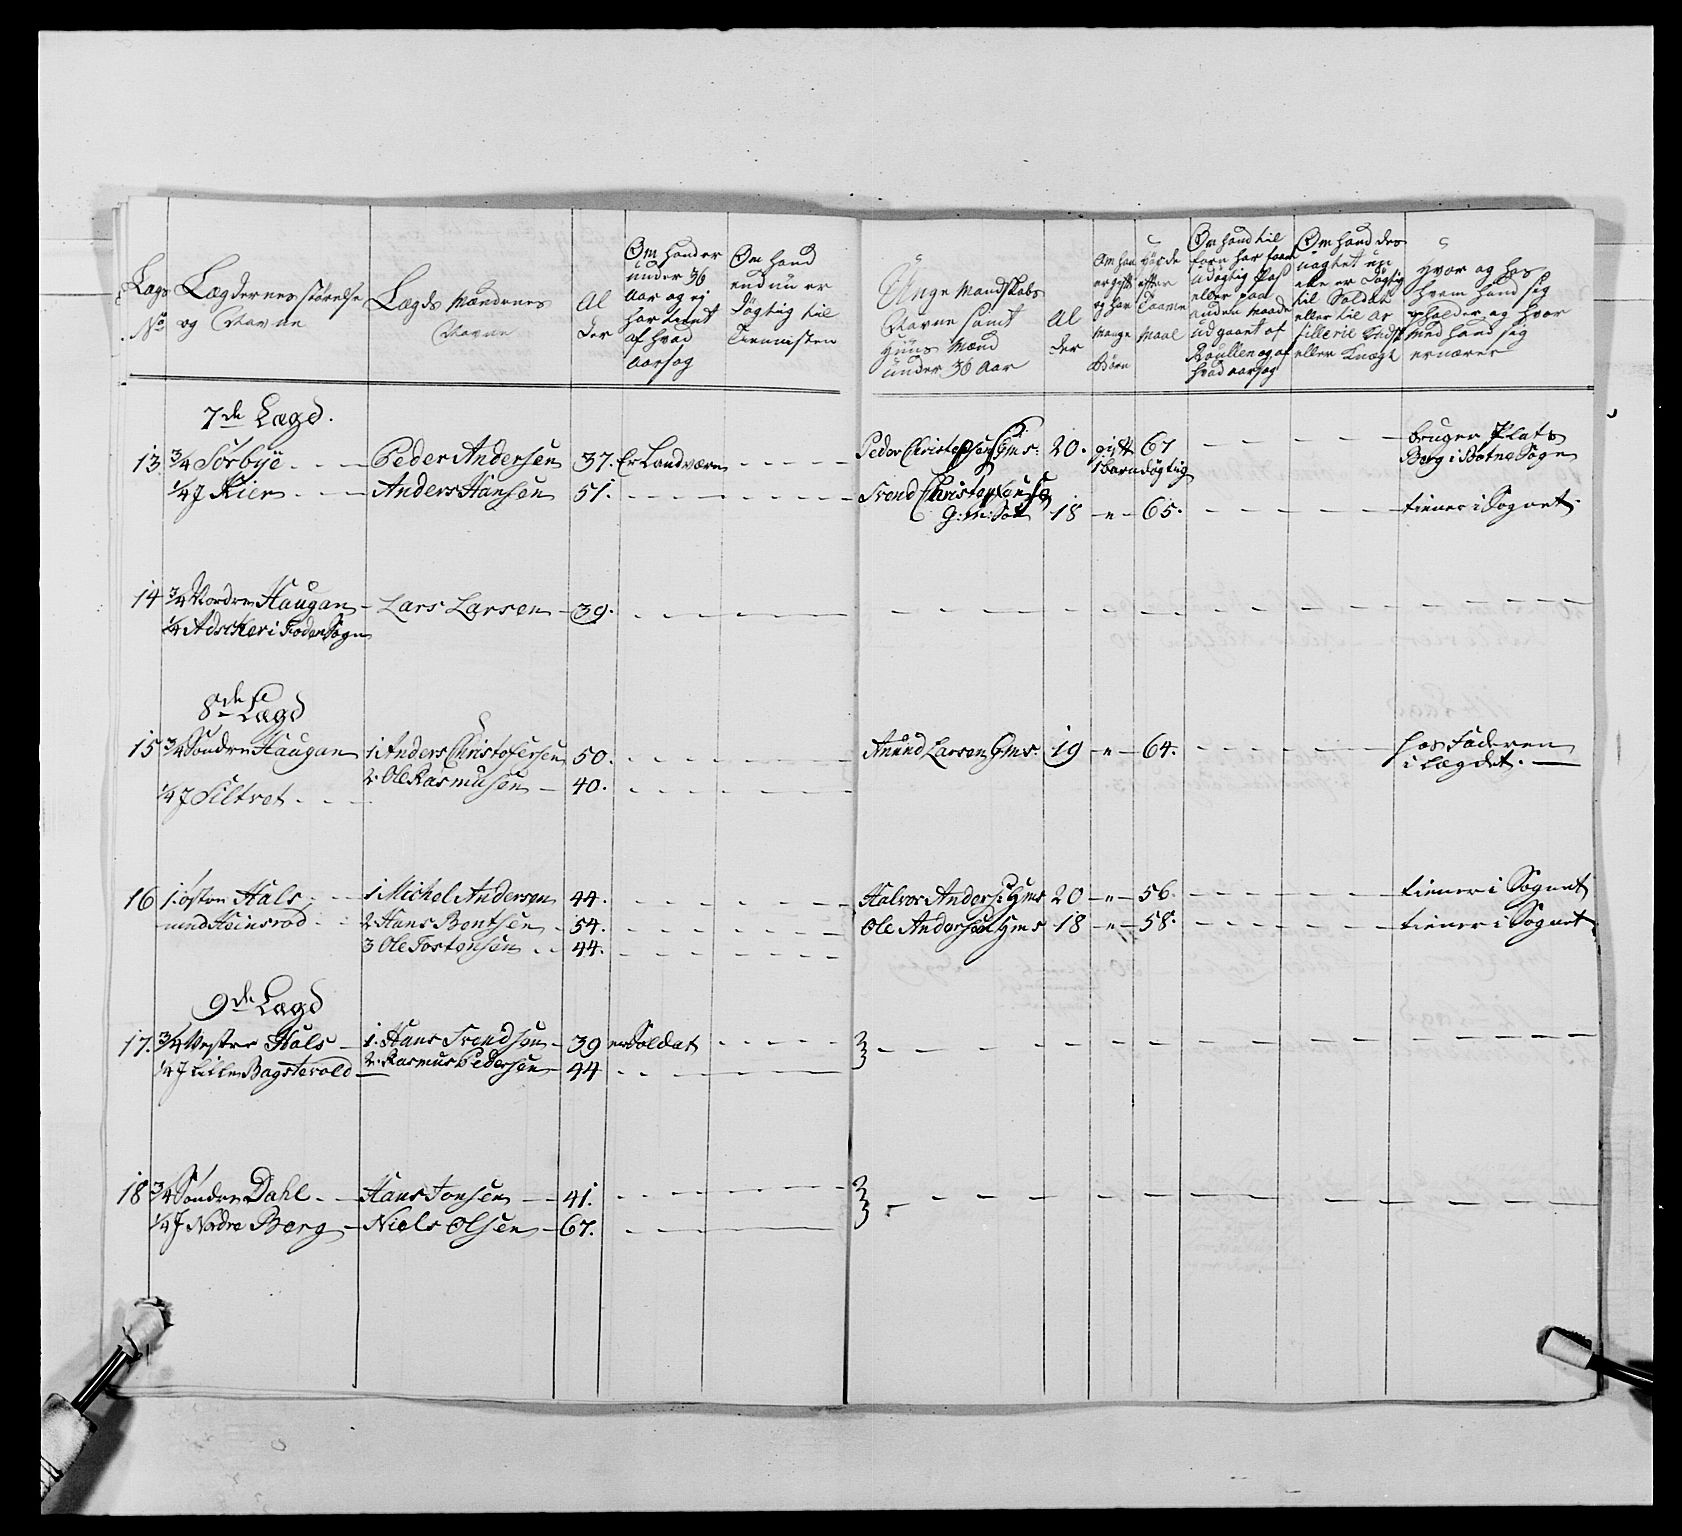 Lægs No
Lægdernes størrelse og Navne
Lægds Mændenes Navne
Al der
Om hand er under 36 Aar og ej har tient af hvad aarsag
Om hand endnu er dögtig til Tienniesten
Unge Mandskabs Navne samt Huus Mænd under 36 Aar
Al der
Om han er gift og har mange Börn
Maal
Om hand til forn har faaet udögtig Pas eller paa anden maade udgaaet af Roullen og af hvad aarsag
Om hand des uagtet nu ikke er dögtig til Soldat eller til Artillerie eller Knægt
Hvor og hos hvem hand sig opholder og hvor med hand sig ernærer
7de Lægd.
13 3/4 Sörbye Peder Andersen 37. Er Landværn
Peder Christophersen Gms: 20. gift 67 bruger Plads
1 barn dögtig Berg i Botne Sogn
1/4 J Kier Anders Hansen 51.
Svend Christophersen
G: M: Sön 18 " 65. tiener i Sognet
14 3/4 Nordre Haugan Lars Larsen 39.
1/4 Adskier i Sogn
8de Lægd
15 3/4 Söndre Haugan 1 Anders Christofersen 50.
Anund Larsen Gms 19 " 64. hos Faderen
i Lægdet.
2. Ole Rasmusen 40.
1/4 J Siltvet
16 1. östen Hals 1 Michel Andersen 44.
Halvor Anders: Gms 20 " 56. tiener i Sognet
med Heinsrod 2 Hans Bentsen 54.
Ole Andersen Gms 18 " 58. tiener i Sognet
3 Ole Tostensen 44.
9de Lægd
17. 3/4 Vestre Hals 1. Hans Svendsen 39 er Soldat
1/4 J Lille Bagstevold 2. Rasmus Pedersen 44
18 3/4 Söndre Dahl Hans Jonsen 41.
1/4 J Nordre Berg Niels Olsen 67.